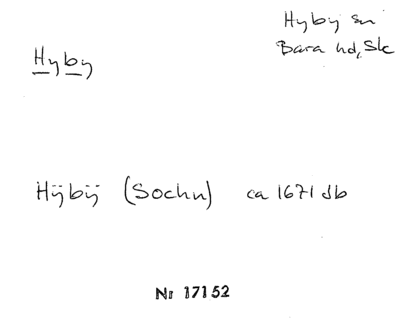 Hyby
Hyby sn
Bara hd, Sk
Hÿbÿ (Sochn) ca 1671 Jb
Nr 17152